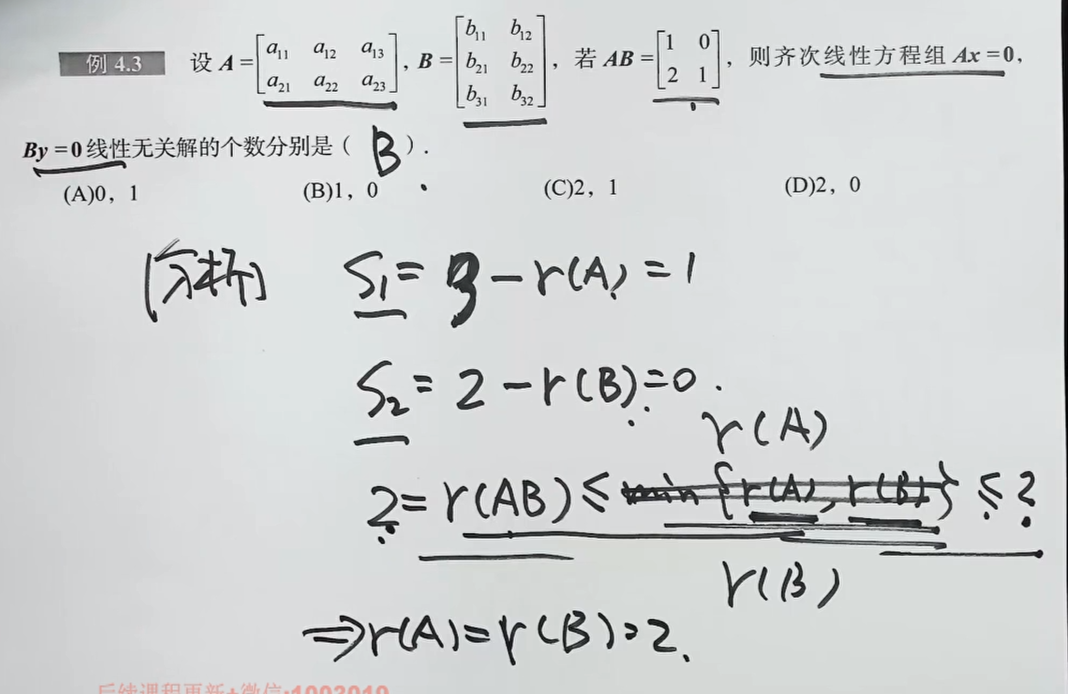 例 4.3 设 A = [a11 a12 a13; a21 a22 a23], B = [b11 b12; b21 b22; b31 b32], 若 AB = [1 0; 2 1], 则齐次线性方程组 Ax = 0,
By = 0 线性无关解的个数分别是( B ).
(A)0, 1 (B)1, 0 (C)2, 1 (D)2, 0
[分析] S1 = 3 - r(A) = 1
S2 = 2 - r(B) = 0.
r(A)
2 = r(AB) ≤ min{r(A), r(B)} ≤ 2
r(B)
⇒ r(A) = r(B) = 2.
后续课程更新+微信:1003019